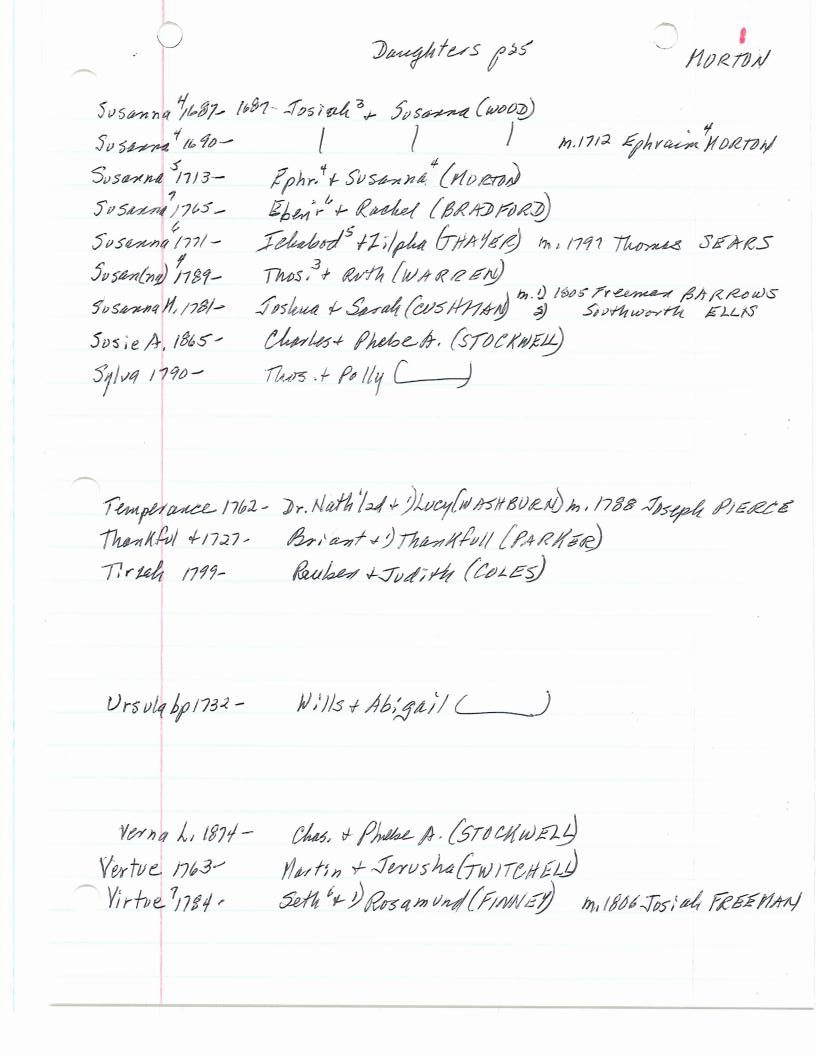 Daughters p25
MORTON
Susanna⁴ 1687- 1687- Josiah³ + Susanna (WOOD)
Susanna⁴ 1690- | | | m. 1712 Ephraim⁴ MORTON
Susanna⁵ 1713- Ephr.⁴ + Susanna⁴ (MORTON)
Susanna⁷ 1765- Eben'r⁶ + Rachel (BRADFORD)
Susanna⁶ 1771- Ichabod⁵ + Zilpha (THAYER) m. 1797 Thomas SEARS
Susan(na)⁴ 1789- Thos.³ + Ruth (WARREN)
Susanna H. 1781- Joshua + Sarah (CUSHMAN) m. 1) 1805 Freeman BARROWS
Southworth ELLIS
Susie A. 1865- Charles + Phebe A. (STOCKWELL)
Sylva 1790- Thos. + Polly (______)
Temperance 1762- Dr. Nath'l 2d + 1) Lucy (WASHBURN) m. 1788 Joseph PIERCE
Thankful + 1727- Briant + 1) Thankfull (PARKER)
Tirzah 1799- Reuben + Judith (COLES)
Ursula bp 1732- Wills + Abigail (______)
Verna L. 1874- Chas. + Phebe A. (STOCKWELL)
Vertue 1763- Martin + Jerusha (TWITCHELL)
Virtue⁷ 1784- Seth⁶ + 1) Rosamund (FINNEY) m. 1806 Josiah FREEMAN